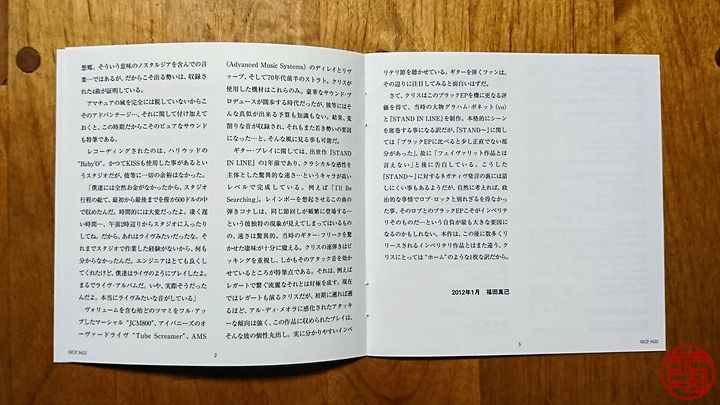 想郷。そういう意味のノスタルジアを含んでの言
葉…ではあるが、だからこそ出る勢いは、収録さ
れた4曲が証明している。
アマチュアの域を完全には脱していないからこ
そのアドバンテージ…、それに関して付け加えて
おくと、この時期だからこそのピュアなサウンド
も特筆である。
レコーディングされたのは、ハリウッドの
"Baby'O"。かつてKISSも使用した事があるとい
うスタジオだが、彼等に一切の余裕はなかった。
「僕達には全然お金がなかったから、スタジオ
行程の総て、最初から最後までを僅か500ドルの中
で収めたんだ。時間的には大変だったよ。凄く遅
い時間…、午前2時辺りからスタジオに入ったり
してね。だから、あれはライヴみたいだったな。そ
れまでスタジオで作業した経験がないから、何も
分からなかったんだ。エンジニアはとても良くし
てくれたけど、僕達はライヴのようにプレイしたよ。
まるでライヴ・アルバムだ。いや、実際そうだった
んだよ。本当にライヴみたいな音がしている」
ヴォリュームを含む殆どのツマミをフル・アッ
プしたマーシャル"JCM800"、アイバニーズのオ
ーヴァードライヴ"Tube Screamer"、AMS
SICP 3422
(Advanced Music Systems) のディレイとリヴ
ァーブ、そして'70年代前半のストラト。クリスが
使用した機材はこれらのみ。豪華なサウンド・プ
ロデュースが闊歩する時代だったが、彼等にはそ
んな真似が出来る予算も知識もない。結果、変
削りな音が収録され、それもまた若さの勢いの要因
になった…と、そんな風に見る事も可能だ。
ギター・プレイに関しては、出世作『STAND
IN LINE』の1年前であり、クラシカルな感性を
主体とした驚異的な速さ…というキャラが高いレ
ベルで完成している。例えば「I'll Be
Searching」。レインボーを想起させるこの曲の
弾きコナしは、同じ節回しが頻繁に登場する…
という彼独特の現象が見えてしまってはいるもの
の、速さは驚異的。当時のギター・フリークを驚
かせた凄味が十分に窺える。クリスの速弾きはピ
ッキングを重視し、しかもそのアタック音を効か
せているところが特筆点である。それは、例えばレ
ガートで繋ぐ流麗なそれとは対極を成す。現在
ではレガートも演るクリスだが、初期に遡れば遡
るほど、アル・ディ・メオラに感化されたアタッキ
ーな傾向は強く、この作品に収められたプレイは、
そんな彼の個性丸出し。実に分かりやすいインペ
2
リテリ節を聴かせている。ギターを弾くファンは、
その辺りに注目してみると面白いはずだ。
さて、クリスはこのブラックEPを機に更なる評
価を得て、当時の大物グラハム・ボネット(vo)
と『STAND IN LINE』を制作。本格的にシーン
を席巻する事になる訳だが、『STAND〜』に関し
ては「ブラックEPに比べると少し正直でない部
分があった」、故に「フェイヴァリット作品とは
言えない」と後に告白している。こうした
『STAND〜』に対するネガティヴ発言の裏には話
しにくい事もあるようだが、自然に考えれば、政
治的な事情でロブ・ロックと別れざるを得なかっ
た事、そのロブとのブラックEPこそがインペリテ
リそのものだ…という自負が最も大きな要因に
なるのかもしれない。本作は、この後に数多くリ
リースされるインペリテリ作品とはまた違う、ク
リスにとって"ホーム"のような1枚な訳だから。
2012年1月 福田真己
3
SICP 3422